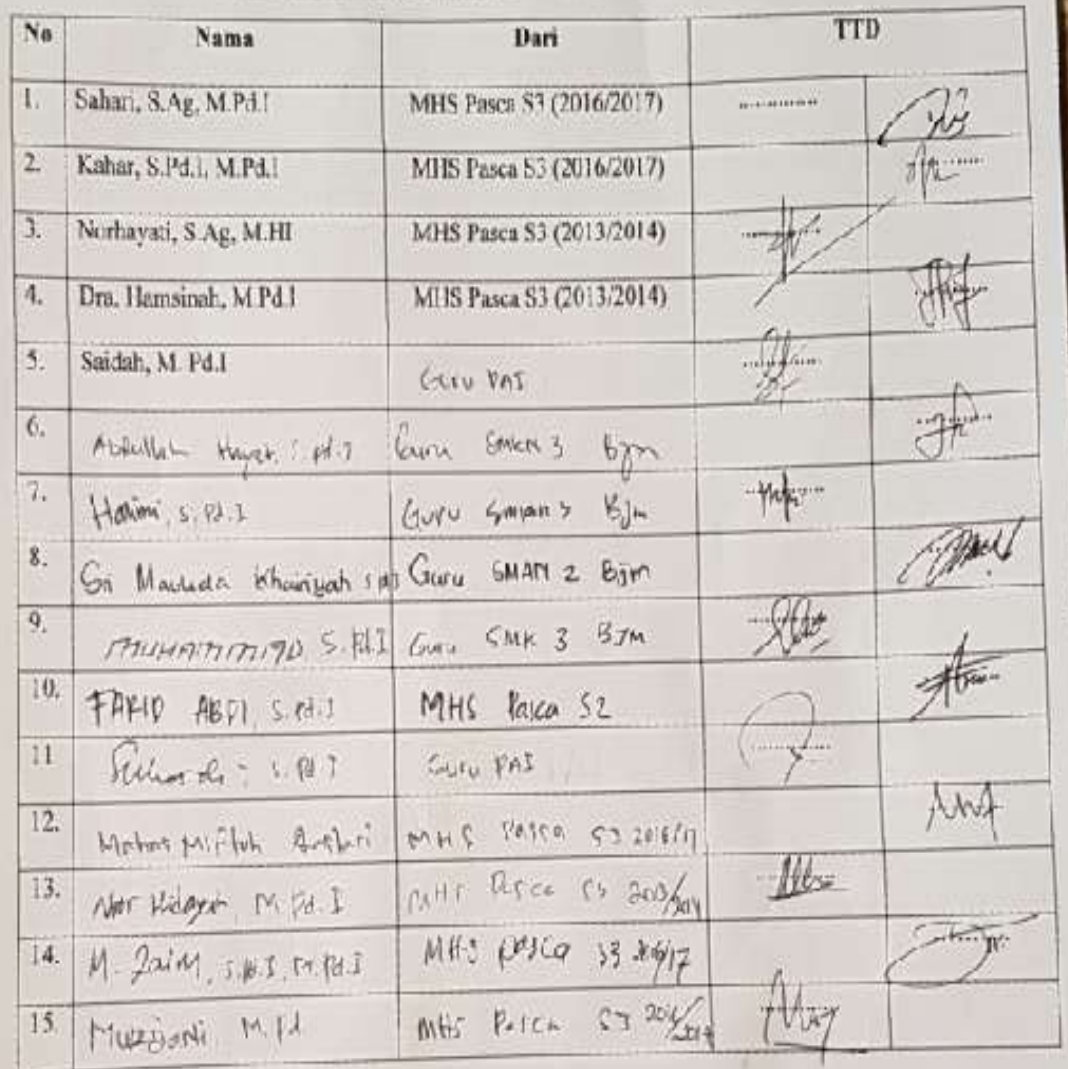 No Nama Dari TTD
1. Sahari, S.Ag, M.Pd.I MHS Pasca S3 (2016/2017)
2. Kahar, S.Pd.I, M.Pd.I MHS Pasca S3 (2016/2017)
3. Norhayati, S.Ag, M.HI MHS Pasca S3 (2013/2014)
4. Dra. Hamsinah, M.Pd.I MHS Pasca S3 (2013/2014)
5. Saidah, M. Pd.I Guru PAI
6. Abdullah Guru SMKN 3 Bjm
7. S.Pd.I Guru SMAN 3 Bjm
8. Sri Maulida Khairiyah Guru SMAN 2 Bjm
9. MUHAMMAD S.Pd.I Guru SMK 3 BJM
10. FARID ABDI, S.Pd.I MHS Pasca S2
11 S.Pd.I Guru PAI
12. Miftah MHS Pasca S3 2016/17
13. Nor Hidayah, M.Pd.I MHS Pasca S3 2013/2014
14. M. Zaim, S.Pd.I, M.Pd.I MHS Pasca S3 2016/17
15. M.Pd MHS Pasca S3 2016/2017